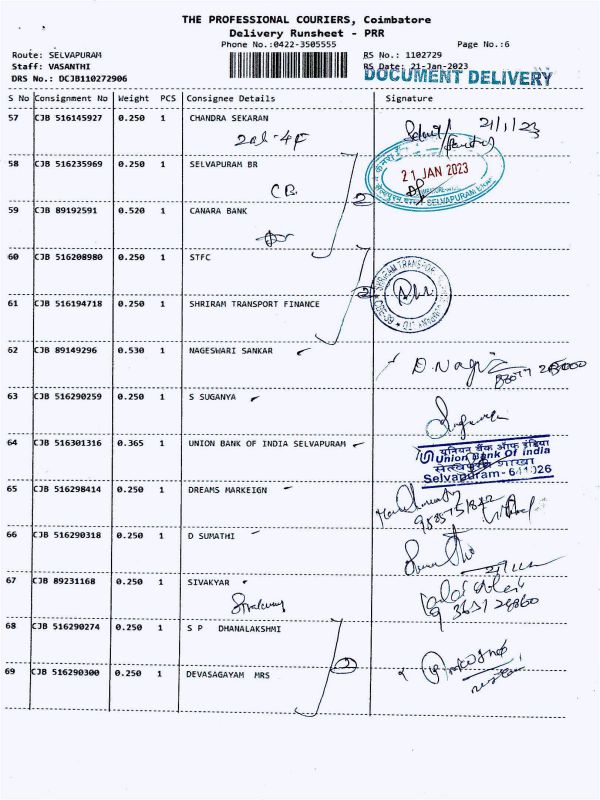 THE PROFESSIONAL COURIERS, Coimbatore
Delivery Runsheet - PRR
Phone No.:0422-3505555 Page No.:6
Route: SELVAPURAM RS No.: 1102729
Staff: VASANTHI RS Date: 21-Jan-2023
DRS No.: DCJB110272906 DOCUMENT DELIVERY
S No Consignment No Weight PCS Consignee Details Signature
57 CJB 516145927 0.250 1 CHANDRA SEKARAN
21/1/23
58 CJB 516235969 0.250 1 SELVAPURAM BR
21 JAN 2023
CB.
2
SELVAPURAM
59 CJB 89192591 0.520 1 CANARA BANK
60 CJB 516208980 0.250 1 STFC
SHRIRAM TRANSPORT
2
61 CJB 516194718 0.250 1 SHRIRAM TRANSPORT FINANCE
62 CJB 89149296 0.530 1 NAGESWARI SANKAR
D. Nagi
63 CJB 516290259 0.250 1 S SUGANYA
64 CJB 516301316 0.365 1 UNION BANK OF INDIA SELVAPURAM
यूनियन बैंक ऑफ इंडिया
Union Bank Of India
शाखा
Selvapuram - 641026
65 CJB 516298414 0.250 1 DREAMS MARKEIGN
66 CJB 516290318 0.250 1 D SUMATHI
67 CJB 89231168 0.250 1 SIVAKYAR
68 CJB 516290274 0.250 1 S P DHANALAKSHMI
2
69 CJB 516290300 0.250 1 DEVASAGAYAM MRS